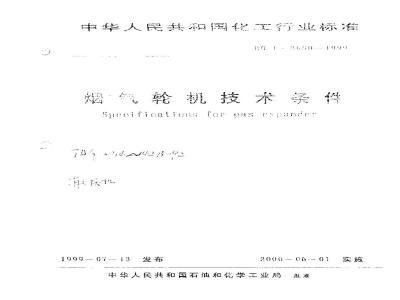 中华人民共和国化工行业标准
HG/T 3650—1999
烟气轮机技术条件
Specifications for gas expander
1999-07-13 发布
2000-06-01 实施
中华人民共和国石油和化学工业局 批准